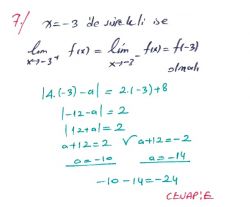 7./ x=-3 'de sürekli ise
lim x→-3⁺ f(x) = lim x→-3⁻ f(x) = f(-3)
olmalı
|4.(-3)-a| = 2.(-3)+8
|-12-a| = 2
|12+a| = 2
a+12=2 ✓ a+12=-2
a=-10 a=-14
-10-14=-24
CEVAP:E